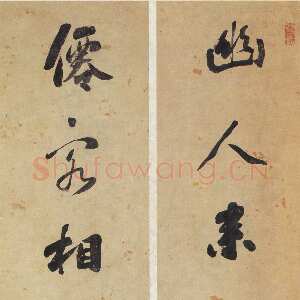 幽人素
僊客相
Shufawang.CN